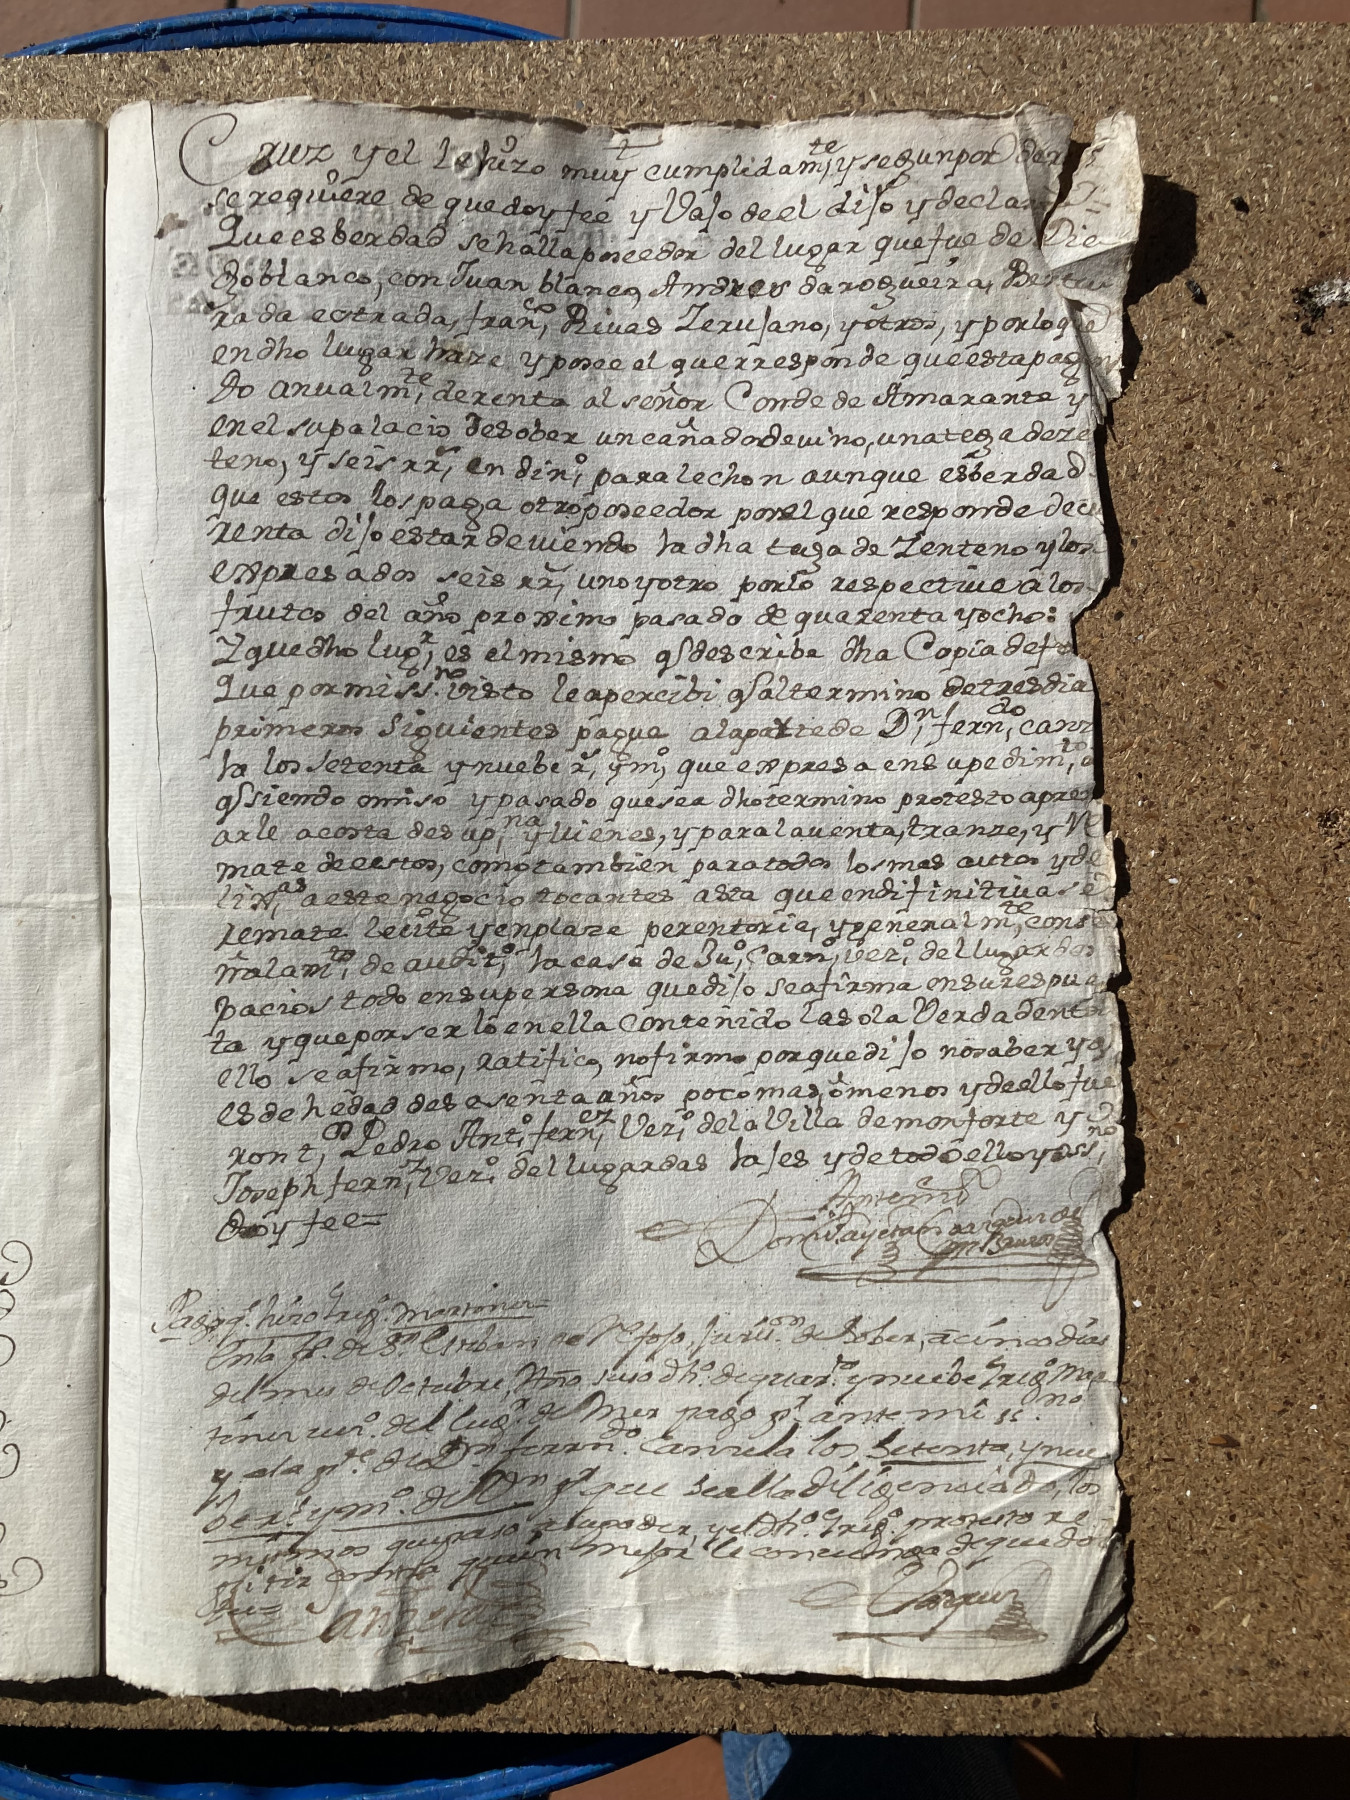 Cruz y el le hizo muy cumplidamte, y segun por der
se requiere de que doy fee y vajo de el dijo y declar
Que es berdad se halla poseedor del lugar que fue de Die
go blanco, con Juan blanco, Andres da rogueira, Bentu
ra da estrada, franco, Rivas Zerujano, y otros, y por lo que
en dho lugar haze y posee el que rresponde que esta pagan
do anualmte, de renta al señor Conde de Amarante y
en el su palacio de sober un cañado de vino, una tega de ze
teno, y seis rrs, en dino, para lechon aunque es berdad
que estos los paga otro poseedor por el que responde de cu
renta dijo estar deviendo la dha tega de Zenteno y los
expresados seis rrs, uno y otro por lo respective a los
frutos del año proximo pasado de quarenta y ocho:
Y que dho lugr, es el mismo q describe dha Copia de f
Que por mi ssno. visto le apercibi q al termino de tres dia
primeros siguientes pague a la parte de Dn, ferndo, canz
la los setenta y nuebe rs, y mo, que expresa en su pedimto,
q siendo omiso y pasado que sea dho termino protesto apre
arle a costa de su pna, y vienes, y para la venta, tranze, y Re
mate de estos, como tambien para todos los mas autos y de
lixas, a este negocio tocantes asta que en difinitiva se
remate le cite y enplaze perentoria, y generalmte, con se
ñalamto, de audito, la casa de Juo, Carno, vezo, del lugar dos
pacios todo en su persona que dijo se afirma en su respue
ta y que por ser lo en ella Contenido la sola Verdad en to
ello se afirmo, ratifico, no firmo porque dijo no saber y q
es de hedad de sesenta años poco mas, o menos y de ello fue
ron tos, Pedro Anto, fernez, Vezo, de la Villa de monforte y
Joseph fernz, Vezo, del lugar das lajes y de todo ello yo ssno,
doy fee=
Antemi
Dom Cayetano
Pago q. hizo Grego. Martinez=
En la fa. de Sn Esteban de Refojo, Jurison. de Sober, a cinco dias
del mes de Octubre, Año suso dho. de quarta. y nuebe Grego Mar
tinez vezo. del lugr de Mer pago pr. ante mi ssno
y a la pte. de Dn ferndo. Canzela los setenta, y nue
be rs. y mo. de Vn pr que se alla diligenciado, los
mismos que paso a su poder, y el dho Grego. protesto re
petir contra quien mejor le convenga de que do
fee=
Canzela
Vazquez